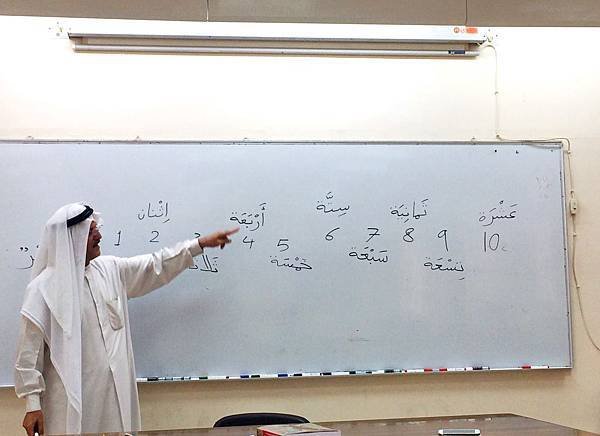 إِثْنان أَرْبَعَة سِتَّة ثَمانِيَة عَشْرَة
1 2 3 4 5 6 7 8 9 10
خَمْسَة سَبْعَة تِسْعَة